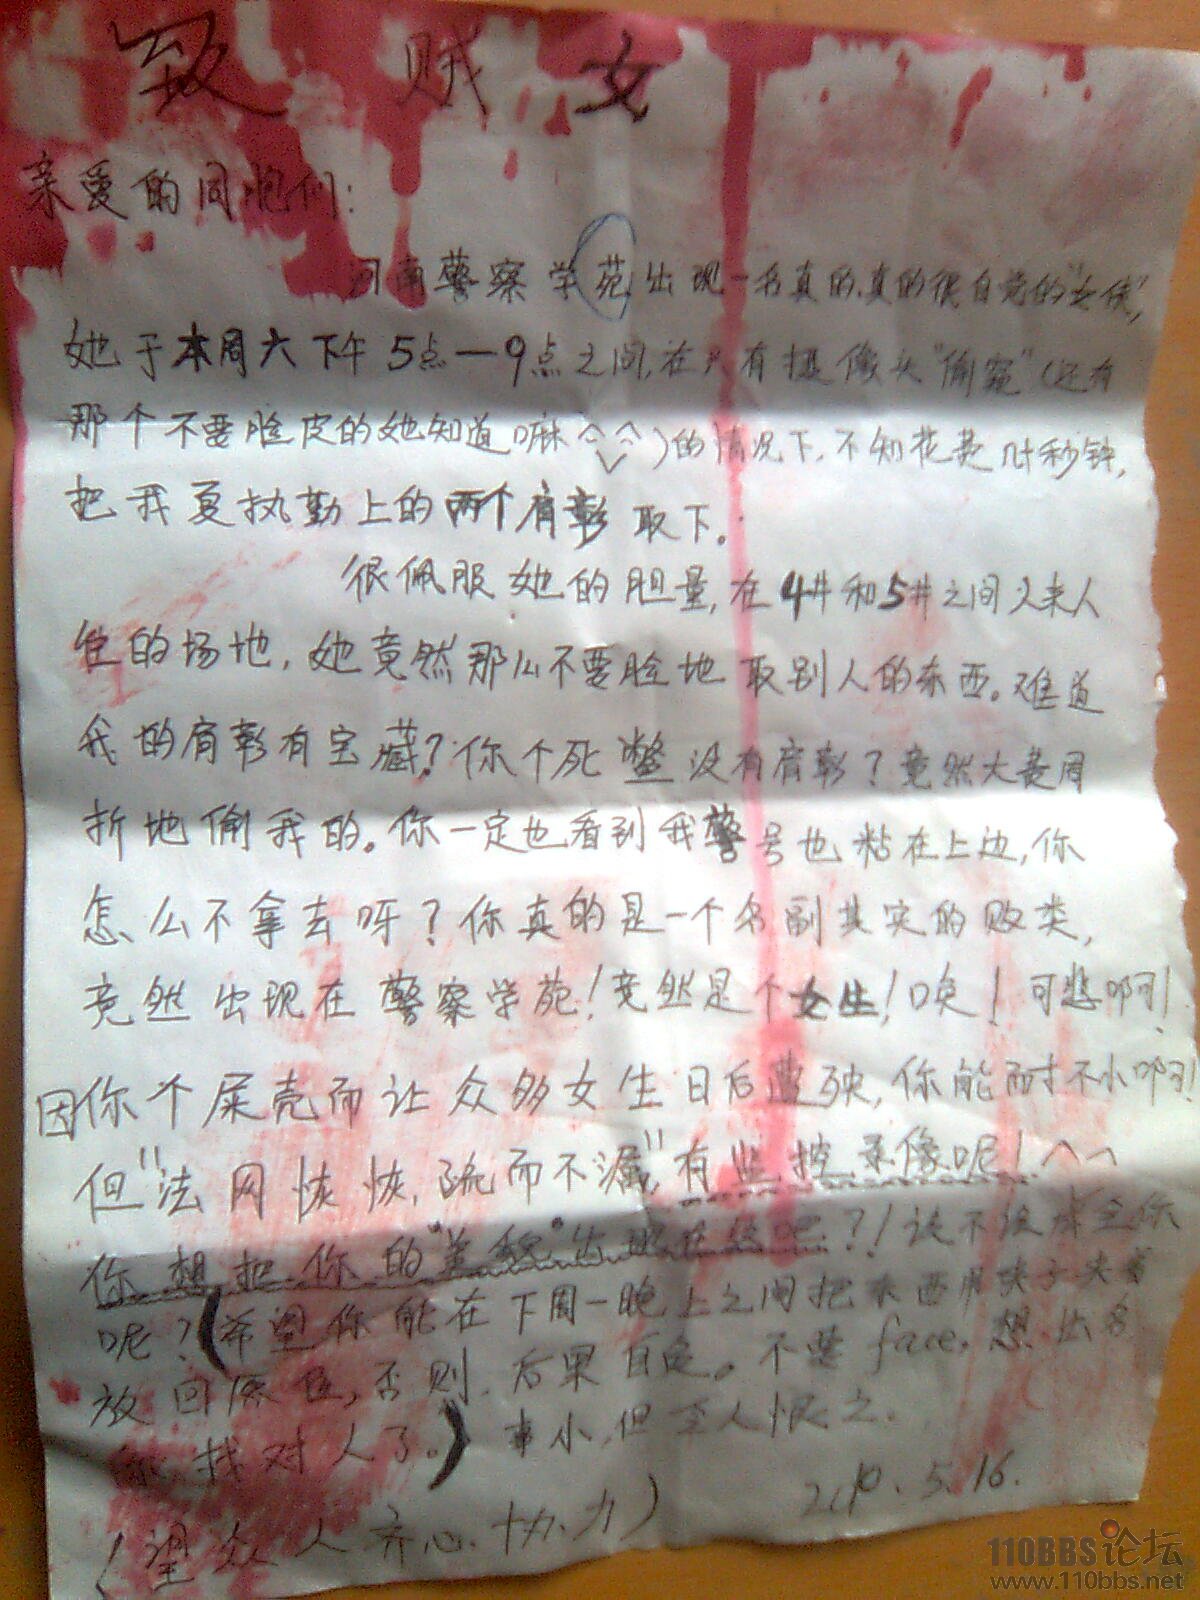 致贼女
亲爱的同胞们:
河南警察学苑出现一名真的、真的很自觉的"女侠",
她于本周六下午5点—9点之间,在只有摄像头"偷窥"(还有
那个不要脸皮的她知道嘛^^)的情况下,不知花费几秒钟,
把我夏执勤上的两个肩彰取下。
很佩服她的胆量,在4井和5井之间又来人
住的场地,她竟然那么不要脸地取别人的东西。难道
我的肩彰有宝藏?你个死鳖没有肩彰?竟然大费周
折地偷我的。你一定也看到我警号也粘在上边,你
怎么不拿去呀?你真的是一个名副其实的败类,
竟然出现在警察学苑!竟然是个女生!唉!可悲啊!
因你个屎壳而让众多女生日后遭殃,你能耐不小啊!
但"法网恢恢,疏而不漏",有监控录像呢!^^
你想把你的"美貌"出 吧?!该不该成全你
呢?(希望你能在下周一晚上之间把东西用夹子夹着
放回原位,否则,后果自负。不要face,想出名
你找对人了。)事小,但至人恨之.
2010.5.16.
(望众人齐心.协力)
110BBS论坛
www.110bbs.net